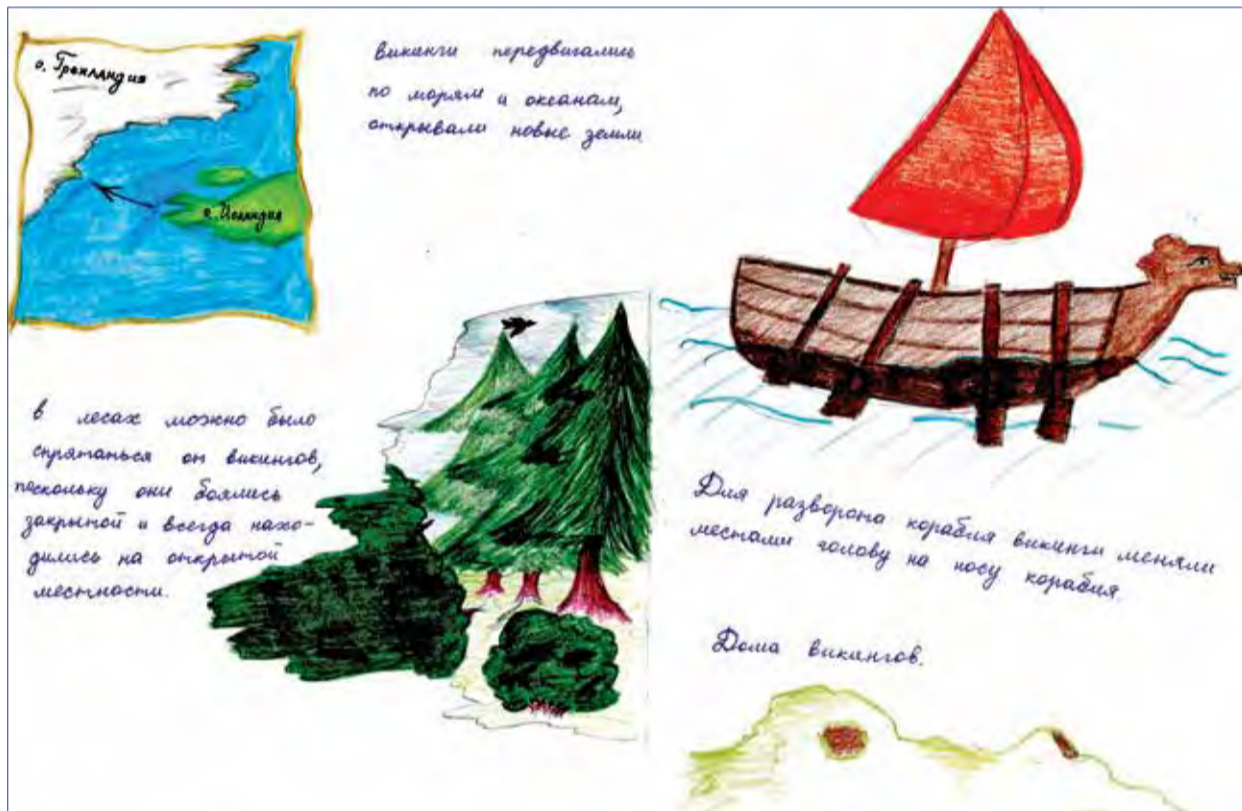 о. Гренландия
о. Исландия
викинги передвигались
по морям и океанам,
открывали новые земли
в лесах можно было
спрятаться от викингов,
поскольку они боялись
закрытой и всегда нахо-
дились на открытой
местности.
Для разворота корабля викинги меняли
местами голову на носу корабля.
Дома викингов.